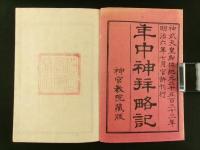 神武天皇即位紀元二千五百三十三年
明治六年七月官許刊行
年中神拜略記
神宮教院藏版